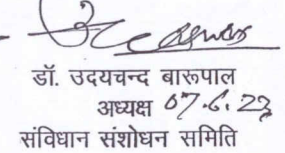 डॉ. उदयचन्द बारूपाल
अध्यक्ष 07.6.22
संविधान संशोधन समिति